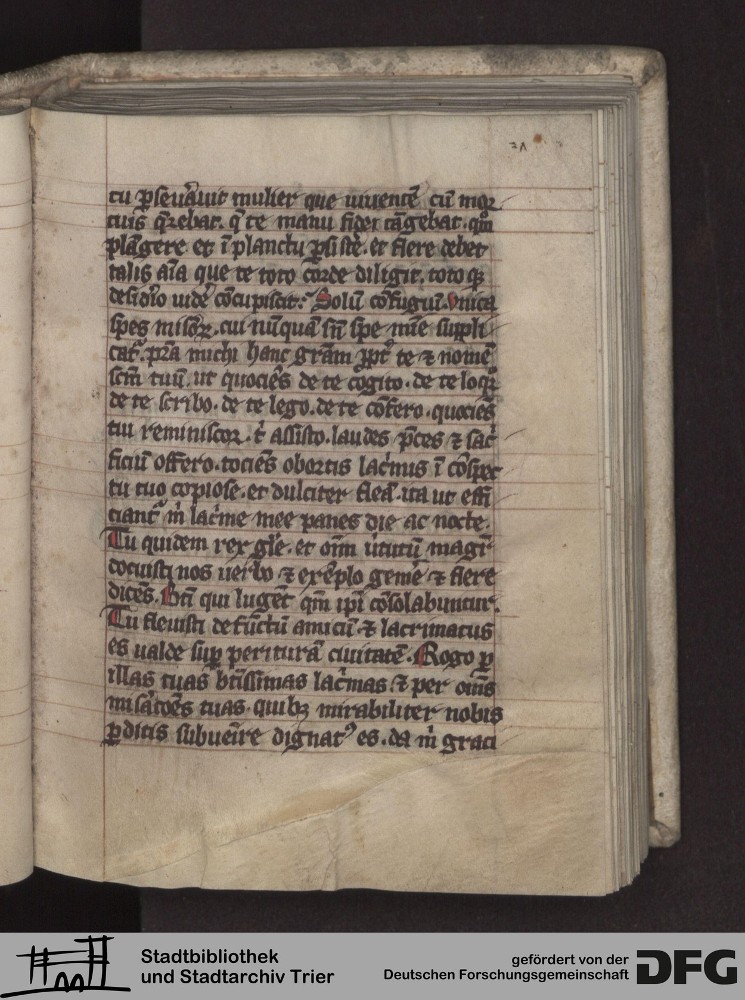 tu ꝑseũauit mulier que uiuentē cū moꝛ
tuis q̄rebat. q̄ te manu fidei tāgebat. qm̄
plāgere et ī planctu ꝑsiste. et flere debet
talis aīa que te toto corde diligit. toto qꝫ
desid̓io uide c̄cupiscit. Solū cōfugiū. vnica
spes miso℞. cui nūquā sñ spe mīe suppli
cat̄. pr̄a michi hanc gr̄am ꝓpt̓ te ⁊ nomē
scm̄ tuū. ut quociēs de te cogito. de te loqr̄
de te scribo. de te lego. de te cōfero. quociēs
tui reminiscoꝛ. t̓ assisto. laudes p̄ces ⁊ sac̓
ficiū offero. tociēs obortis lac̓mis ī cōspec
tu tuo copiose. et dulciter fleā. ita ut effi
ciant̄ m̓ lac̓me mee panes die ac nocte.
Tu quidem rex gl̓e. et om̄ ututū magr̄
docuisti nos uerbo ⁊ exēplo gemē ⁊ flere
dicēs. Bti̅ qui lugēt qm̄ ip̄i cōsolabuntur.
Tu fleuisti defūctū amicū ⁊ lacrimatus
es ualde suꝑ perituram ciuitatē. Rogo ꝑ
illas tuas btīssimas lac̓mas ⁊ per om̄s
mis̓atoēs tuas. quibꝫ mirabiliter nobis
ꝑditis subueīre dignatꝰ es. da m̓ graci
Stadtbibliothek
und Stadtarchiv Trier
gefördert von der
Deutschen Forschungsgemeinschaft
DFG